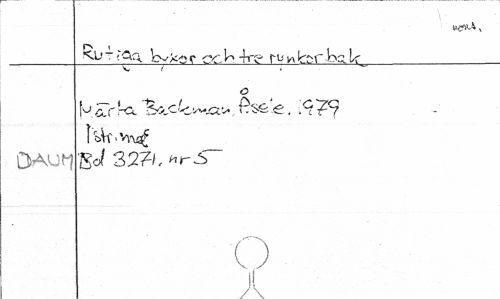 Rutiga byxor och tre rynkor bak
Märta Backman, Åsele. 1979
1 str. mel
DAUM Bd 3271, nr 5